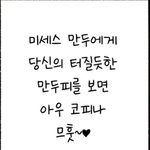 미세스 만두에게
당신의 터질듯한
만두피를 보면
아우 코피나
므흣~♥